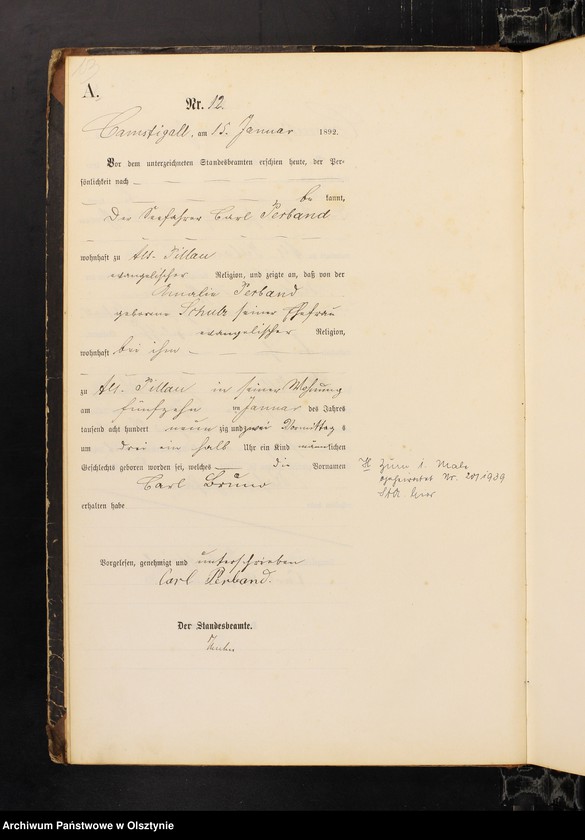 A.
Nr. 12.
Camstigall, am 15. Januar 1892.
Vor dem unterzeichneten Standesbeamten erschien heute, der Per-
sönlichkeit nach
be kannt,
Der Seefahrer Carl Perband
wohnhaft zu Alt-Pillau
evangelischer Religion, und zeigte an, daß von der
Amalie Perband
geborene Schulz seiner Ehefrau
evangelischer Religion,
wohnhaft bei ihm
zu Alt-Pillau in seiner Wohnung
am fünfzehn ten Januar des Jahres
tausend acht hundert neun zig und zwei Vormittag s
um drei ein halb Uhr ein Kind männlichen
Geschlechts geboren worden sei, welches die Vornamen
Carl Bruno
erhalten habe
H Zum 1. Male
geheiratet Nr. 207/1939
StA
Vorgelesen, genehmigt und unterschrieben
Carl Perband.
Der Standesbeamte.
Archiwum Państwowe w Olsztynie